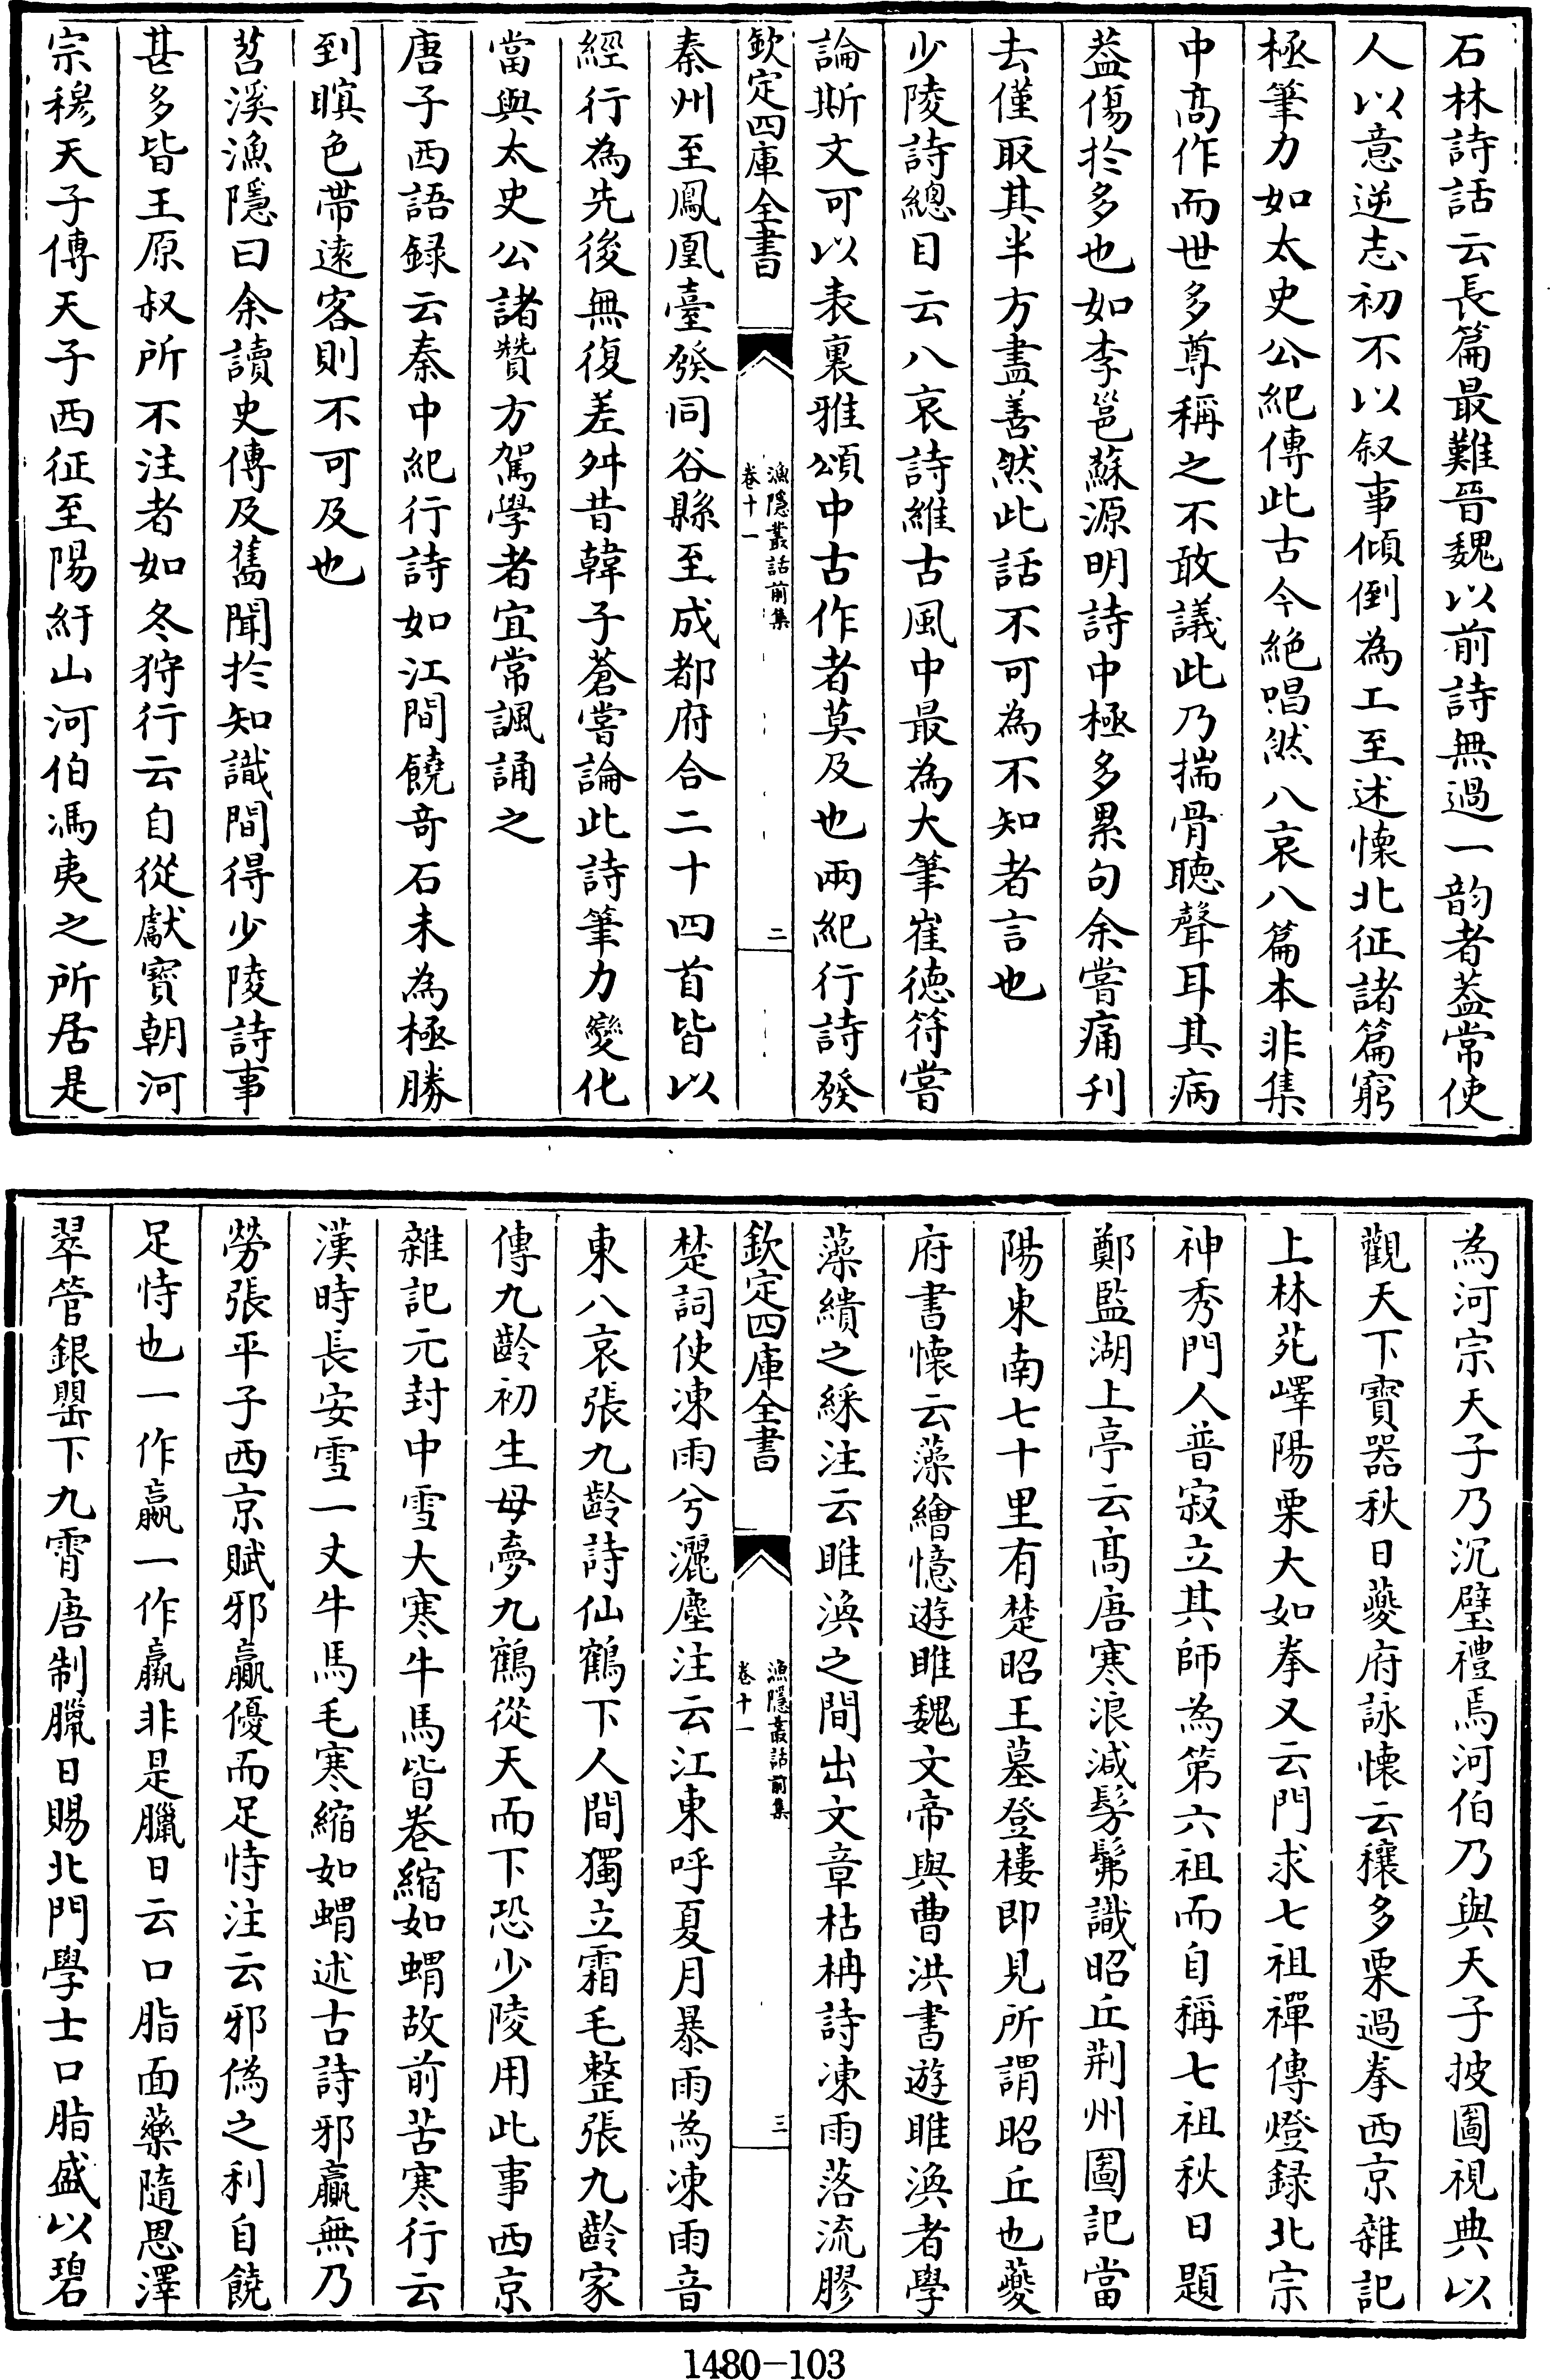 石林詩話云長篇最難晉魏以前詩無過一韵者葢常使
人以意逆志初不以叙事傾倒為工至述懷北征諸篇窮
極筆力如太史公紀傳此古今絶唱然八哀八篇本非集
中髙作而世多尊稱之不敢議此乃揣骨聴聲耳其病
葢傷於多也如李邕蘇源明詩中極多累句余嘗痛刋
去僅取其半方盡善然此話不可為不知者言也
少陵詩總目云八哀詩維古風中最為大筆崔徳符嘗
論斯文可以表裏雅頌中古作者莫及也兩紀行詩發
欽定四庫全書
漁隱叢話前集
卷十一
二
秦州至鳳凰臺發同谷縣至成都府合二十四首皆以
經行為先後無復差舛昔韓子蒼嘗論此詩筆力變化
當與太史公諸贊方駕學者宜常諷誦之
唐子西語録云秦中紀行詩如江間饒奇石未為極勝
到暝色帶遠客則不可及也
苕溪漁隱曰余讀史傳及舊聞於知識間得少陵詩事
甚多皆王原叔所不注者如冬狩行云自從獻寳朝河
宗穆天子傳天子西征至陽紆山河伯馮夷之所居是
為河宗天子乃沉璧禮焉河伯乃與天子披圖視典以
觀天下寳器秋日夔府詠懷云穰多栗過拳西京雜記
上林苑嶧陽栗大如拳又云門求七祖禪傳燈録北宗
神秀門人普寂立其師為第六祖而自稱七祖秋日題
鄭監湖上亭云髙唐寒浪減髣髴識昭丘荆州圖記當
陽東南七十里有楚昭王墓登樓即見所謂昭丘也夔
府書懷云藻繪憶遊睢魏文帝與曹洪書遊睢渙者學
藻繢之綵注云睢渙之間出文章枯柟詩凍雨落流膠
欽定四庫全書
漁隱叢話前集
卷十一
三
楚詞使凍雨兮灑塵注云江東呼夏月暴雨為凍雨音
東八哀張九齡詩仙鶴下人間獨立霜毛整張九齡家
傳九齡初生母夢九鶴從天而下恐少陵用此事西京
雜記元封中雪大寒牛馬皆卷縮如蝟故前苦寒行云
漢時長安雪一丈牛馬毛寒縮如蝟述古詩邪贏無乃
勞張平子西京賦邪贏優而足恃注云邪偽之利自饒
足恃也一作嬴一作羸非是臘日云口脂面藥隨恩澤
翠管銀甖下九霄唐制臘日賜北門學士口脂盛以碧
1480-103